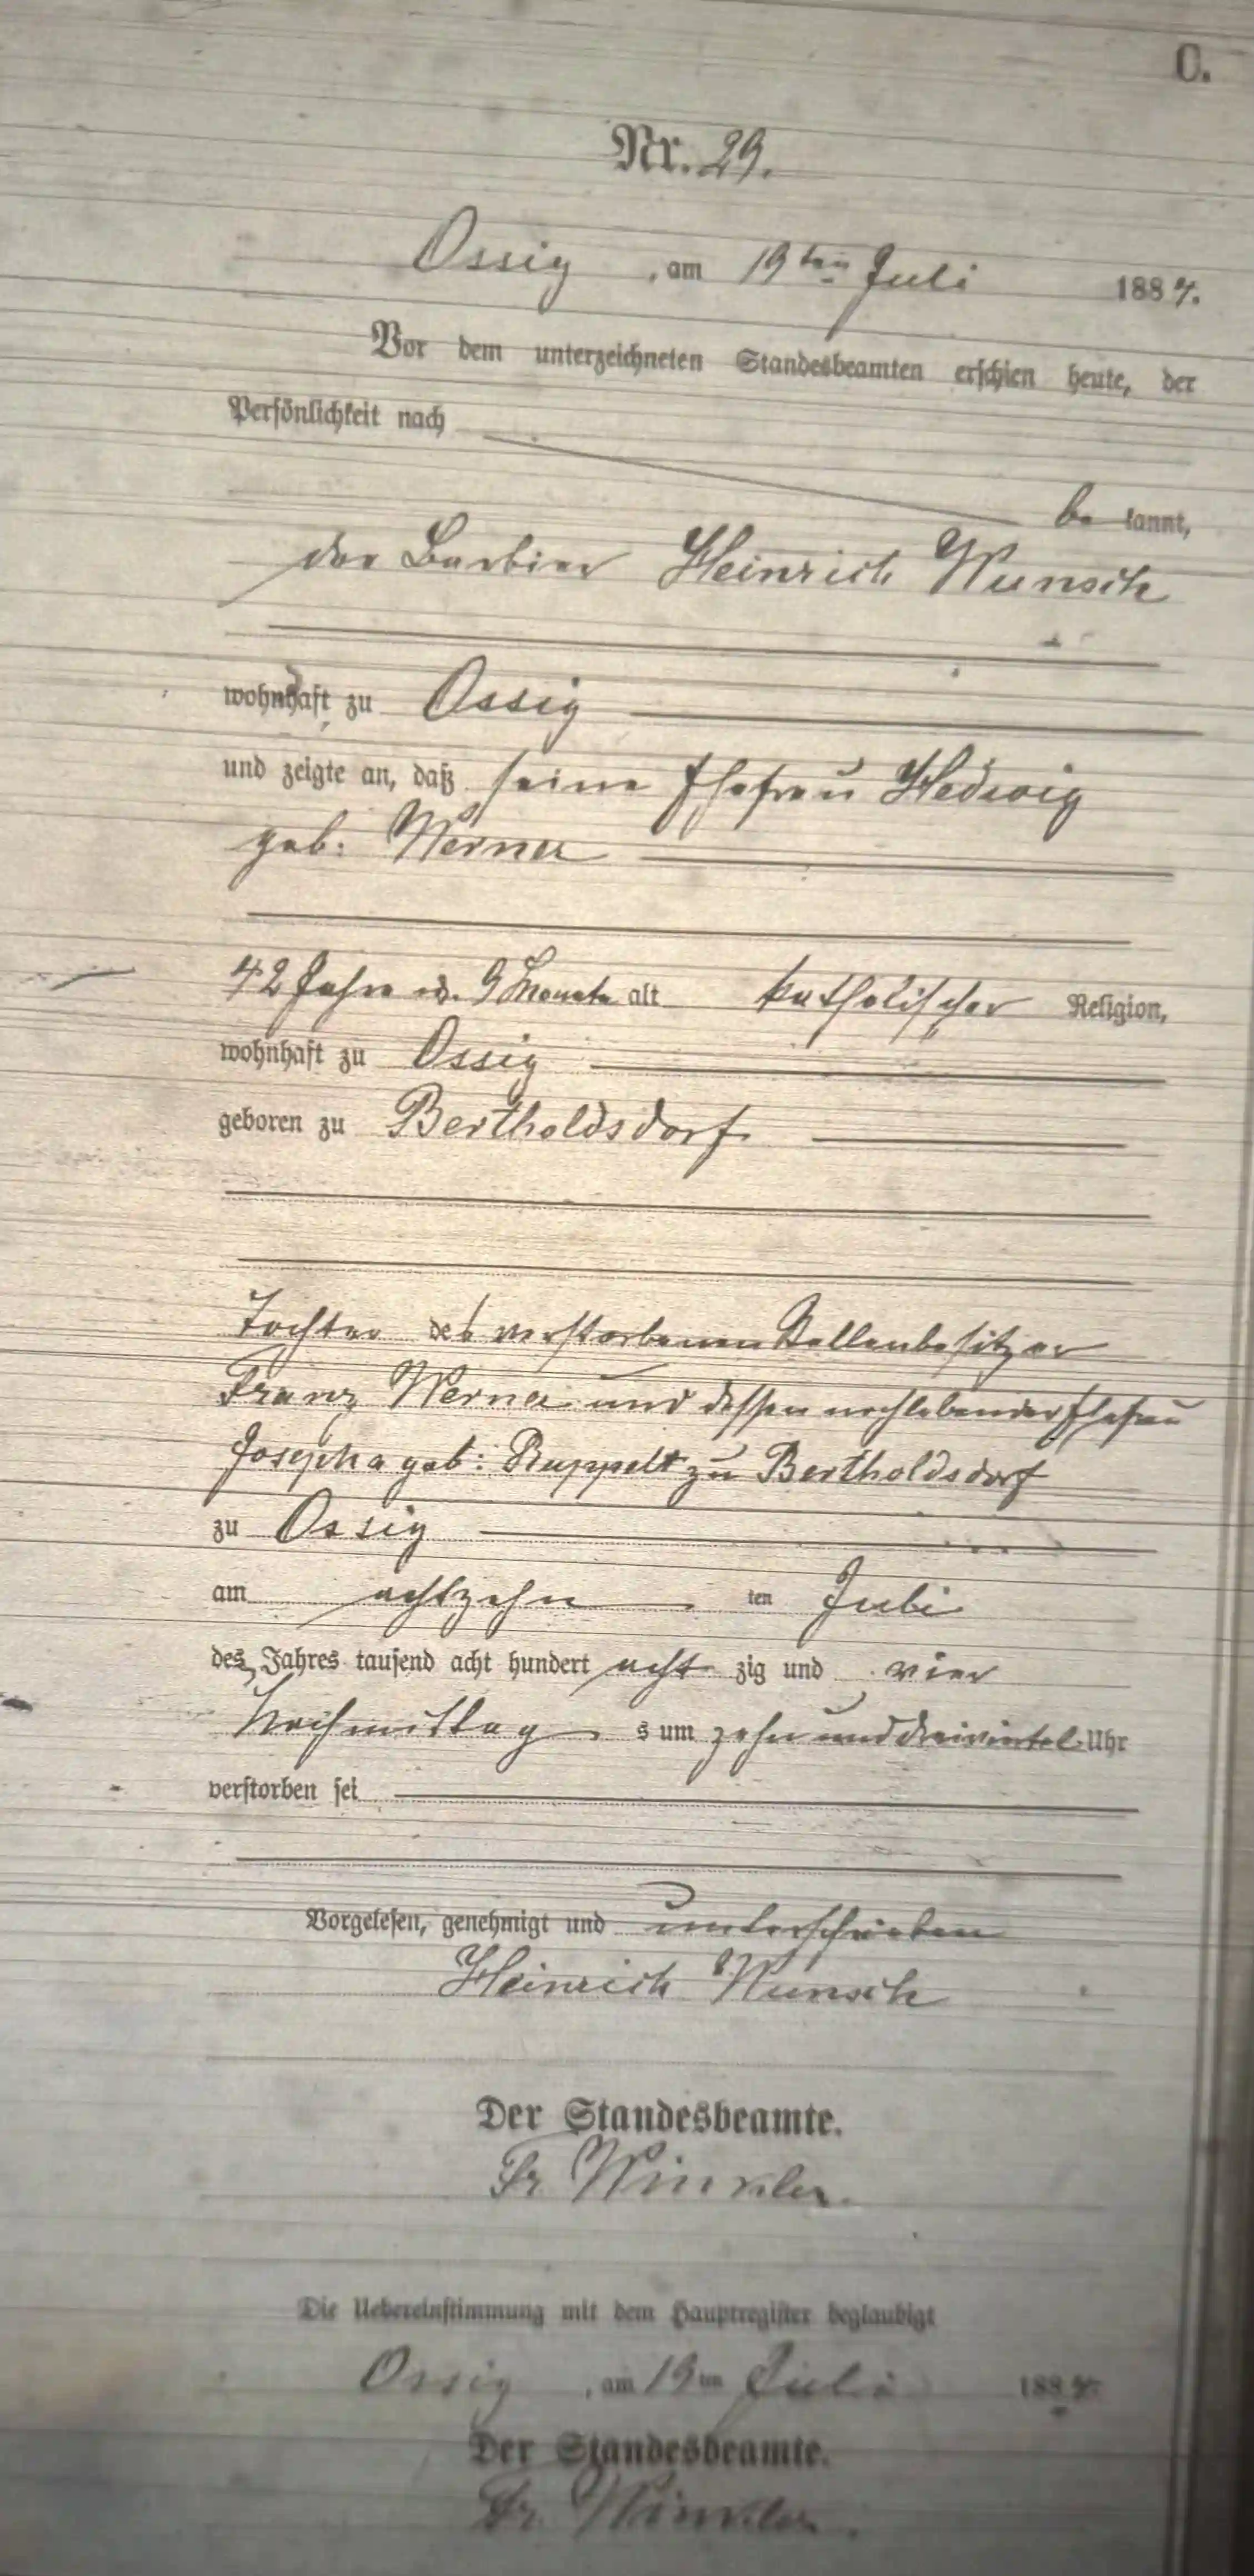 C.
Nr. 29.
Ossig, am 19ten Juli 1884.
Vor dem unterzeichneten Standesbeamten erschien heute, der
Persönlichkeit nach
be kannt,
der Barbier Heinrich Wunsch
wohnhaft zu Ossig
und zeigte an, daß seine Ehefrau Hedwig
geb: Werner
42 Jahre u. 9 Monate alt katholischer Religion,
wohnhaft zu Ossig
geboren zu Bertholdsdorf
Tochter des verstorbenen Stellenbesitzer
Franz Werner und dessen nochlebender Ehefrau
Josepha geb: Ruppelt zu Bertholdsdorf
zu Ossig
am achtzehn ten Juli
des Jahres tausend acht hundert acht zig und vier
Nachmittag s um zehn und dreiviertel Uhr
verstorben sei
Vorgelesen, genehmigt und unterschrieben
Heinrich Wunsch
Der Standesbeamte.
Fr Winkler.
Die Uebereinstimmung mit dem Hauptregister beglaubigt
Ossig, am 19ten Juli 1884.
Der Standesbeamte.
Fr. Winkler.